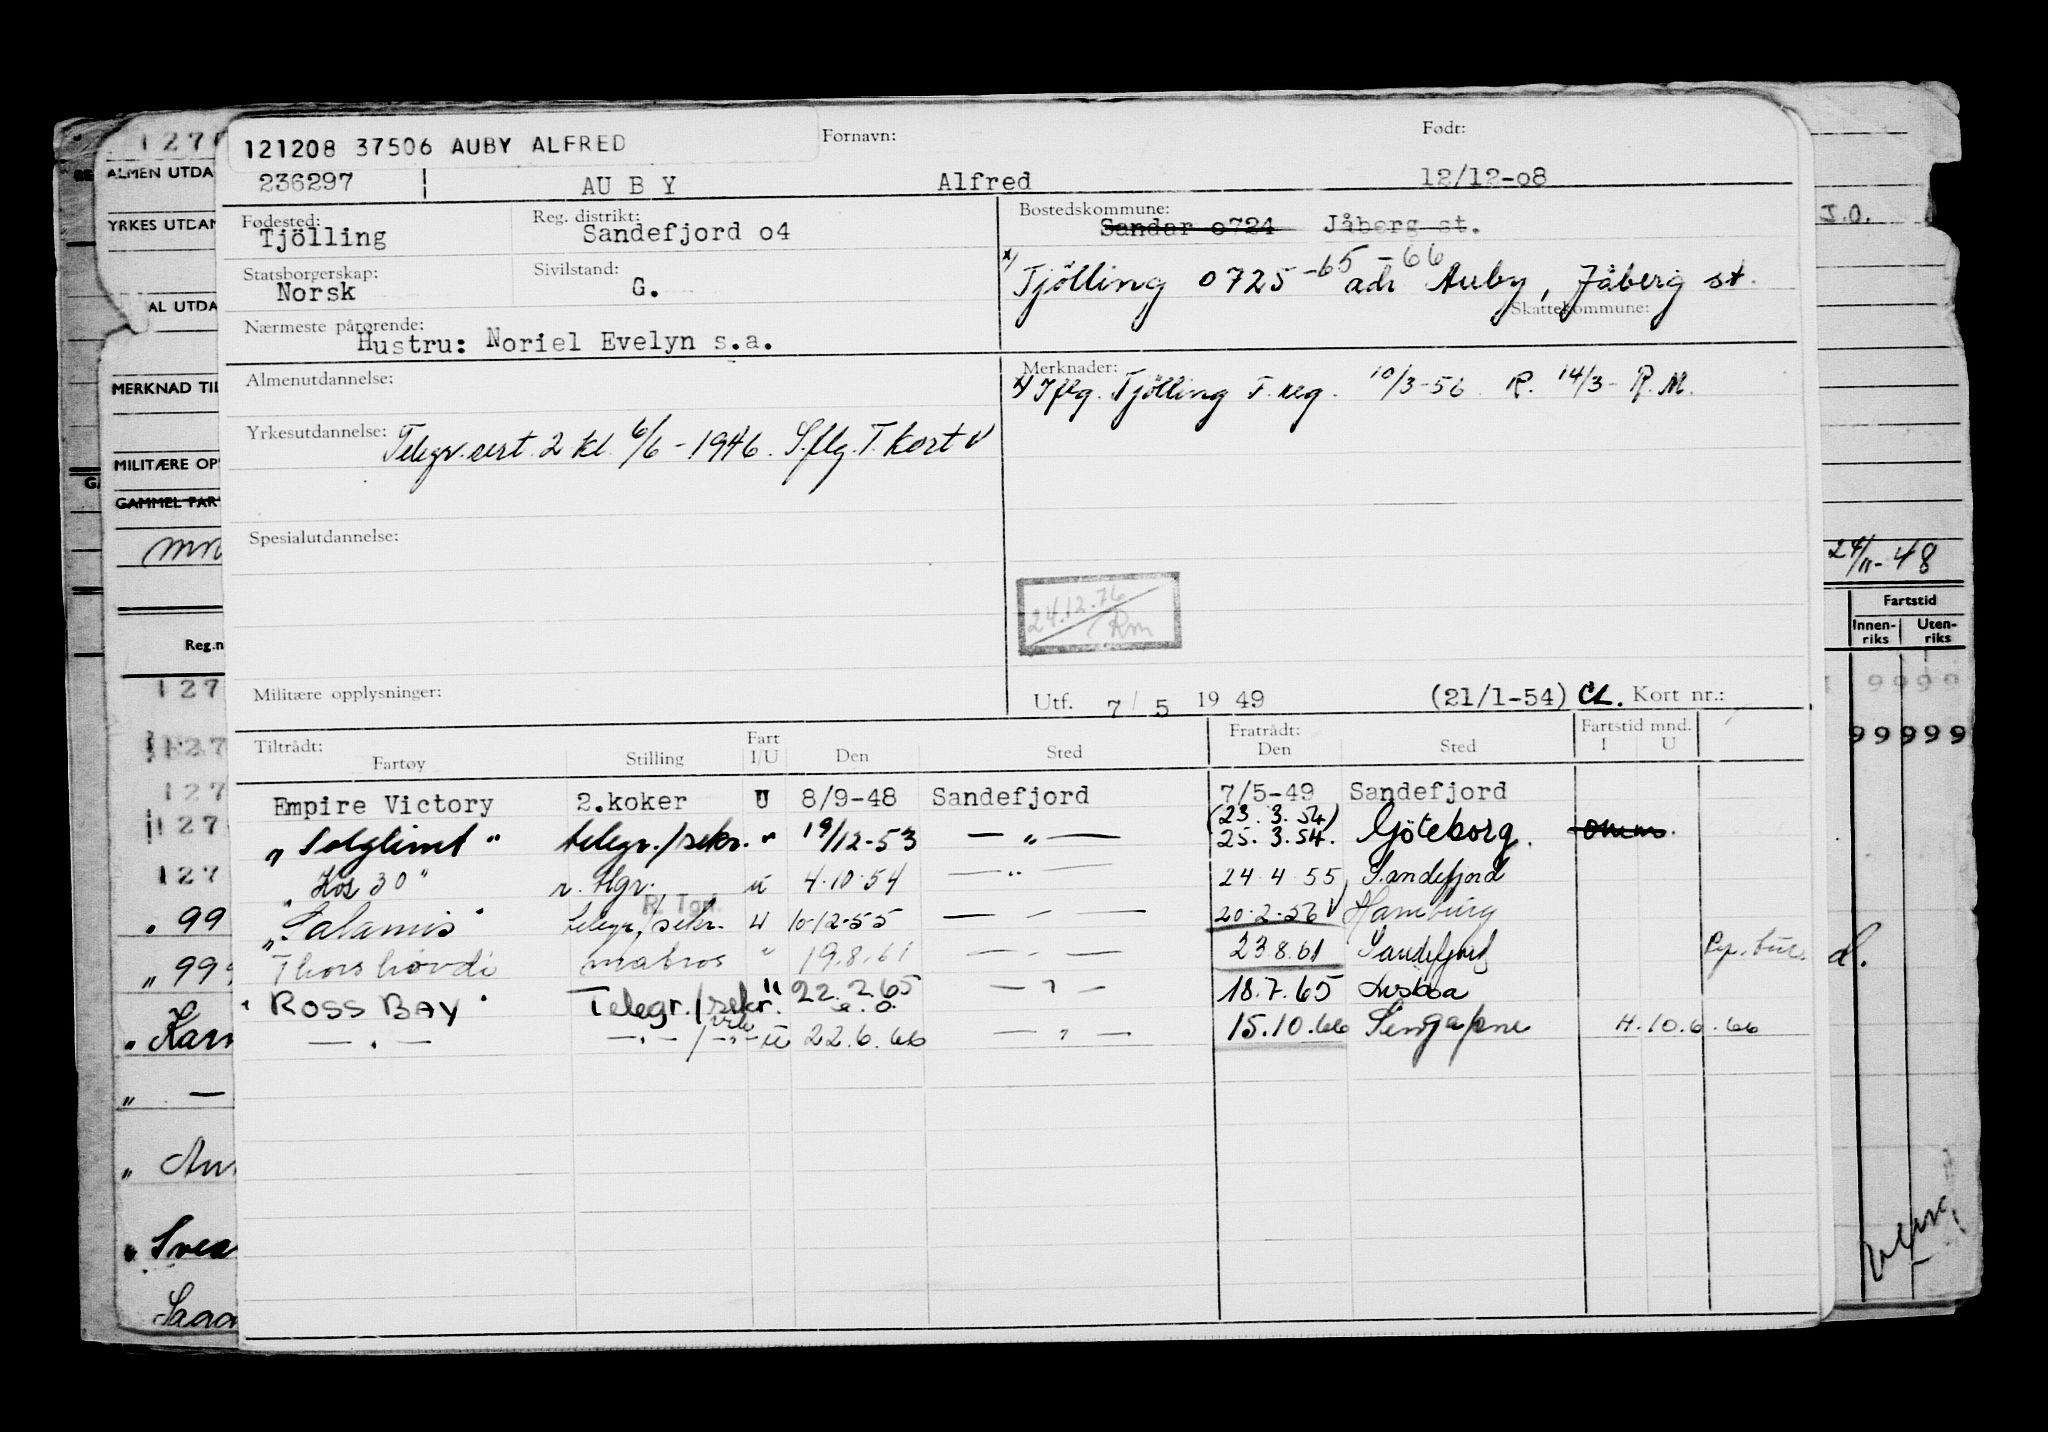 121208 37506 AUBY ALFRED
Fornavn:
Født:
236297 AU B Y Alfred 12/12-o8
Fødested: Tjölling
Reg. distrikt: Sandefjord o4
Bostedskommune: Sandar o724 Jåberg st.
x) Tjölling 0725 -65 -66 adr Auby, Jåberg st.
Statsborgerskap: Norsk
Sivilstand: G.
Skattekommune:
Nærmeste pårørende: Hustru: Noriel Evelyn s.a.
Almenutdannelse:
Merknader:
x) Iflg. Tjölling F. reg. 10/3-56 R. 14/3- R.M.
Yrkesutdannelse: Telegr. cert. 2 kl. 6/6-1946. S.flg. T. kort
Spesialutdannelse:
24.12.76
Rm
Militære opplysninger:
Utf. 7/5 1949 (21/1-54) CL. Kort nr.:
Tiltrådt:
Fartøy Stilling Fart I/U Den Sted
Fratrådt:
Den Sted
Fartstid mnd.
I U
Empire Victory 2.koker U 8/9-48 Sandefjord 7/5-49 Sandefjord
(23.3.54)
"Solglimt" telegr./sekr. " 19/12-53 — " — 25.3.54. Göteborg.
"Kos 30" r. tlgr. u 4.10.54 — " — 24.4.55 Sandefjord
R. Tgr.
"Salamis" telegr./sekr. u 10-12-55 — " — 20.2.56 Hamburg
Thorshövdi matros " 19.8.61 — " — 23.8.61 Sandefjord
"ROSS BAY" Telegr./sekr. " 22.2.65 — " — 18.7.65 Lisboa
— " — — " — / — " — u 22.6.66 — " — 15.10.66 Singapore H.10.6.66
127
ALMEN UTDA
YRKES UTDAN
AL UTDA
MERKNAD TIL
MILITÆRE OP
GAMMEL FAR
Reg.n
127
127
127
127
127
99
99
Karm
Svea
J.O.
24/11-48
Fartstid
Innen-riks Uten-riks
9999
99999